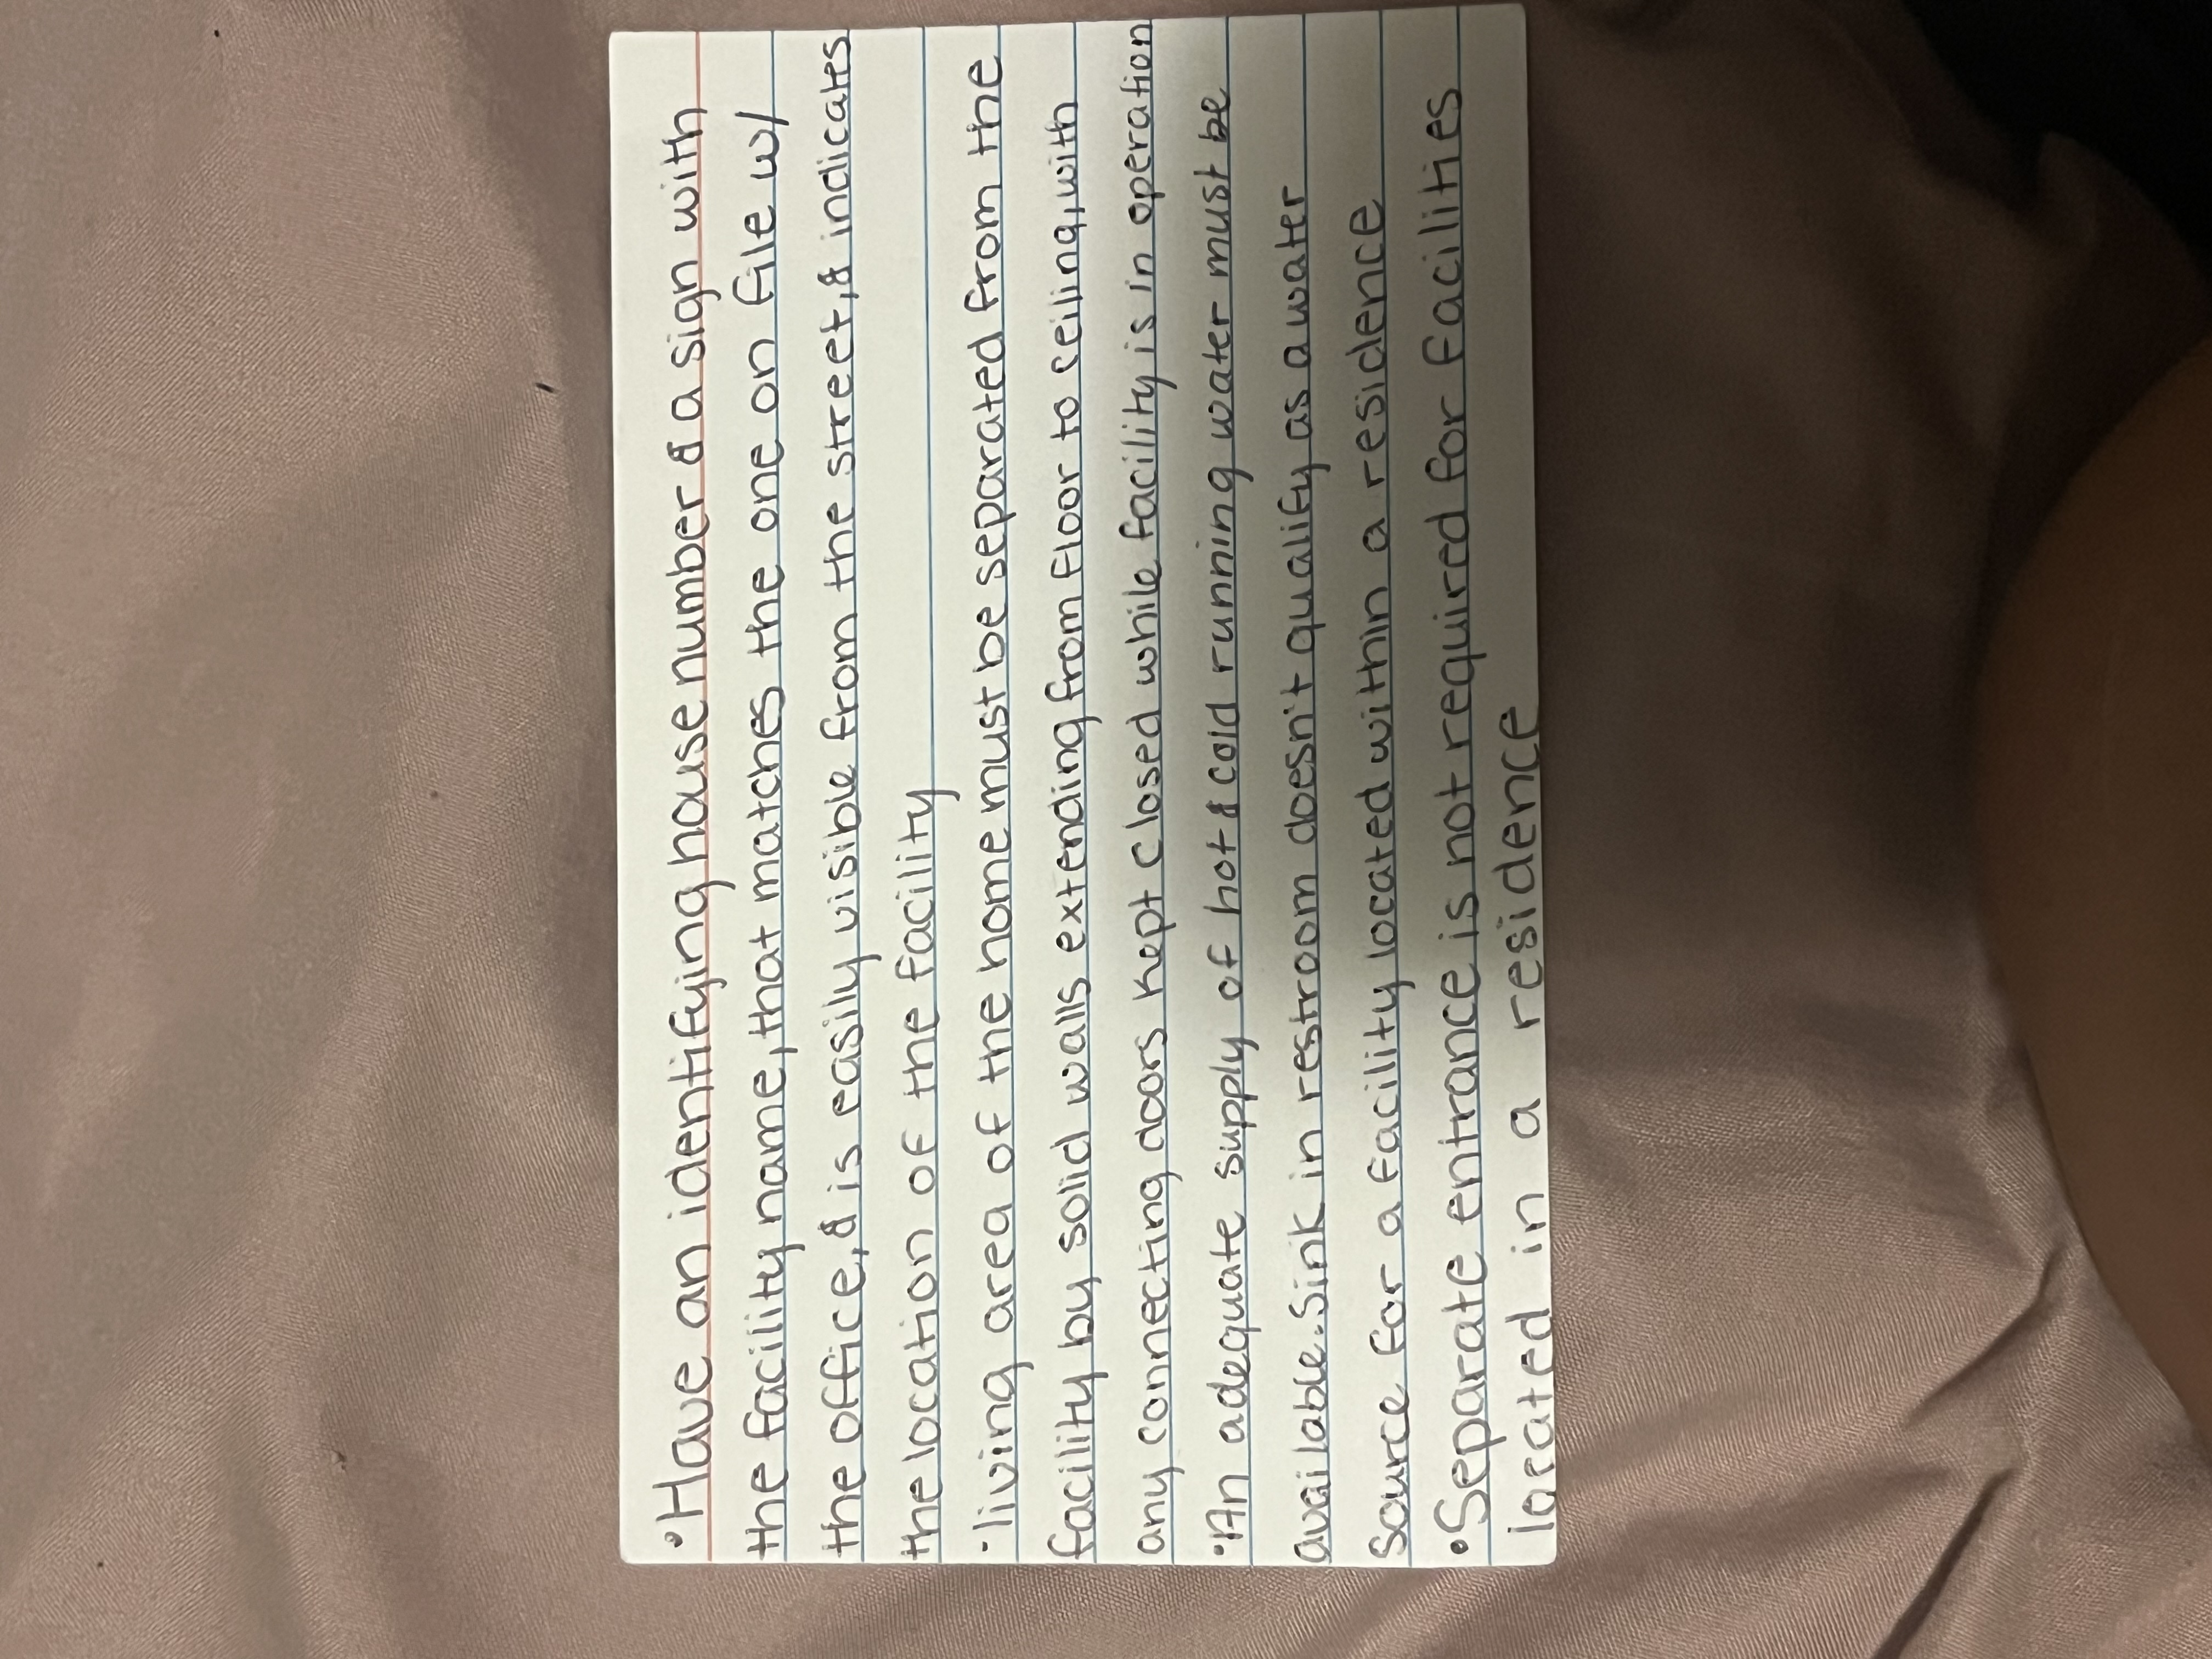 •Have an identifying house number & a sign with
the facility name, that matches the one on file w/
the office, & is easily visible from the street, & indicates
the location of the facility
• living area of the home must be separated from the
facility by solid walls extending from floor to ceiling, with
any connecting doors kept closed while facility is in operation
•An adequate supply of hot & cold running water must be
available. Sink in restroom doesn't qualify as a water
source for a facility located within a residence
•Separate entrance is not required for facilities
located in a residence